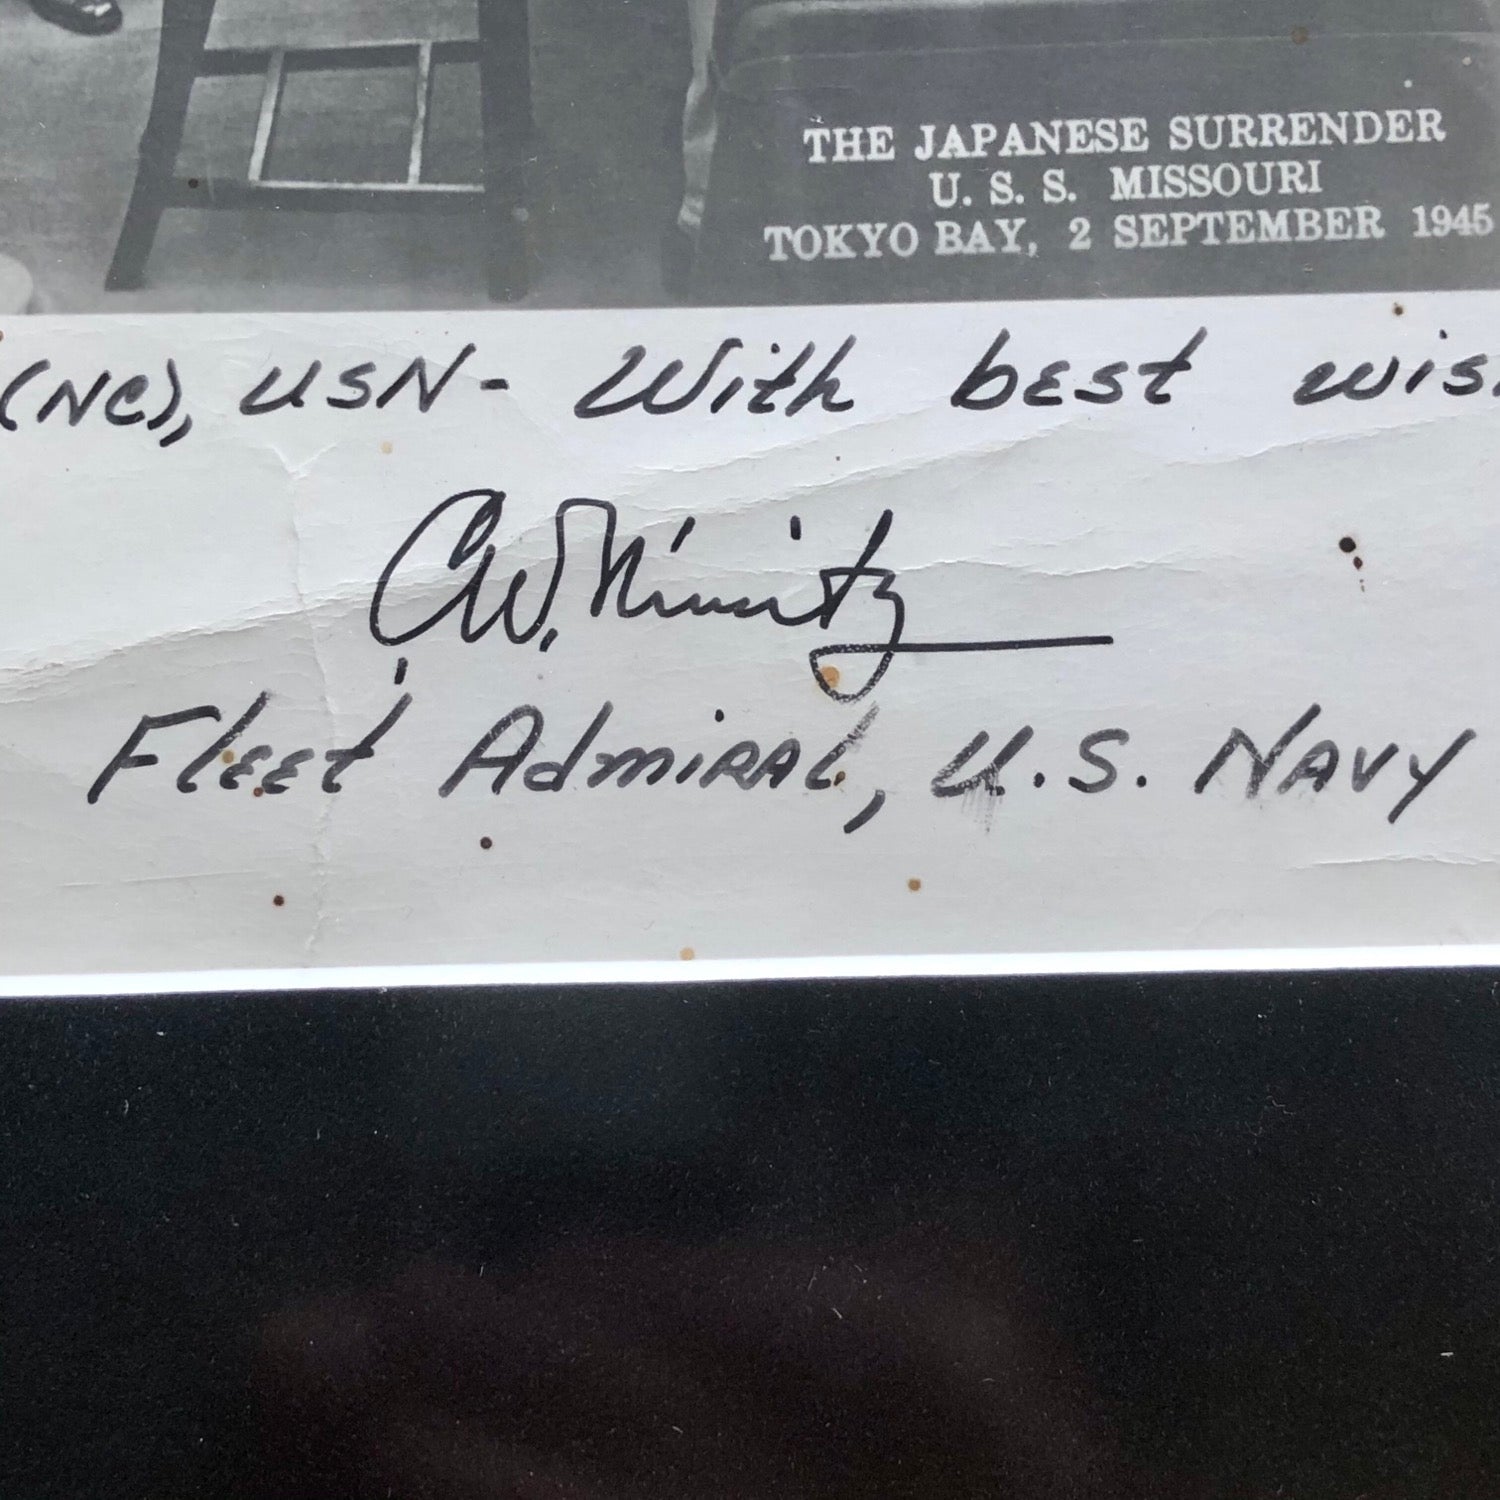 THE JAPANESE SURRENDER
U. S. S. MISSOURI
TOKYO BAY, 2 SEPTEMBER 1945
(NC), USN- With best wis
C.W. Nimitz
Fleet Admiral, U.S. Navy